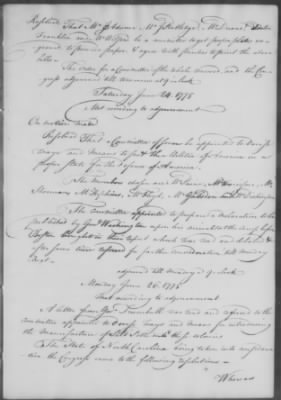 Resolved That Mr Adams, Mr J Rutledge, Mr Duane, Doctr
Franklin and Mr Wilson be a committee to get proper plates en-
graved to provide paper, & agree with printers to print the above
bills.
The order for a Committee of the whole renewed, and the Con-
gress adjourned till tomorrow 9 oClock
Saturday June 24. 1775
Met according to adjournment
On motion made
Resolved That a Committee of seven be appointed to devise
ways and means to put the Militia of America in a
proper state for the defence of America.
The members chosen are Mr Paine, Mr Harrison, Mr
Sherman Mr Hopkins, Mr Floyd, Mr Gadsden and Mr Dickinson
The committee appointed to prepare a declaration to be
published by Genl Washington upon his arrival to the camp before
Boston brought in their report which was read and debated &
after some time referred for farther consideration till Monday
next.
adjourned till Monday 9 oClock
Monday June 26. 1775
Met according to adjournment
A letter from Govr Trumbull was read and referred to the
committee appointed to devise ways and means for introducing
the Manufacture of Salt Petre into the colonies
The State of North Carolina being taken into considera-
tion the Congress came to the following resolutions —
Whereas